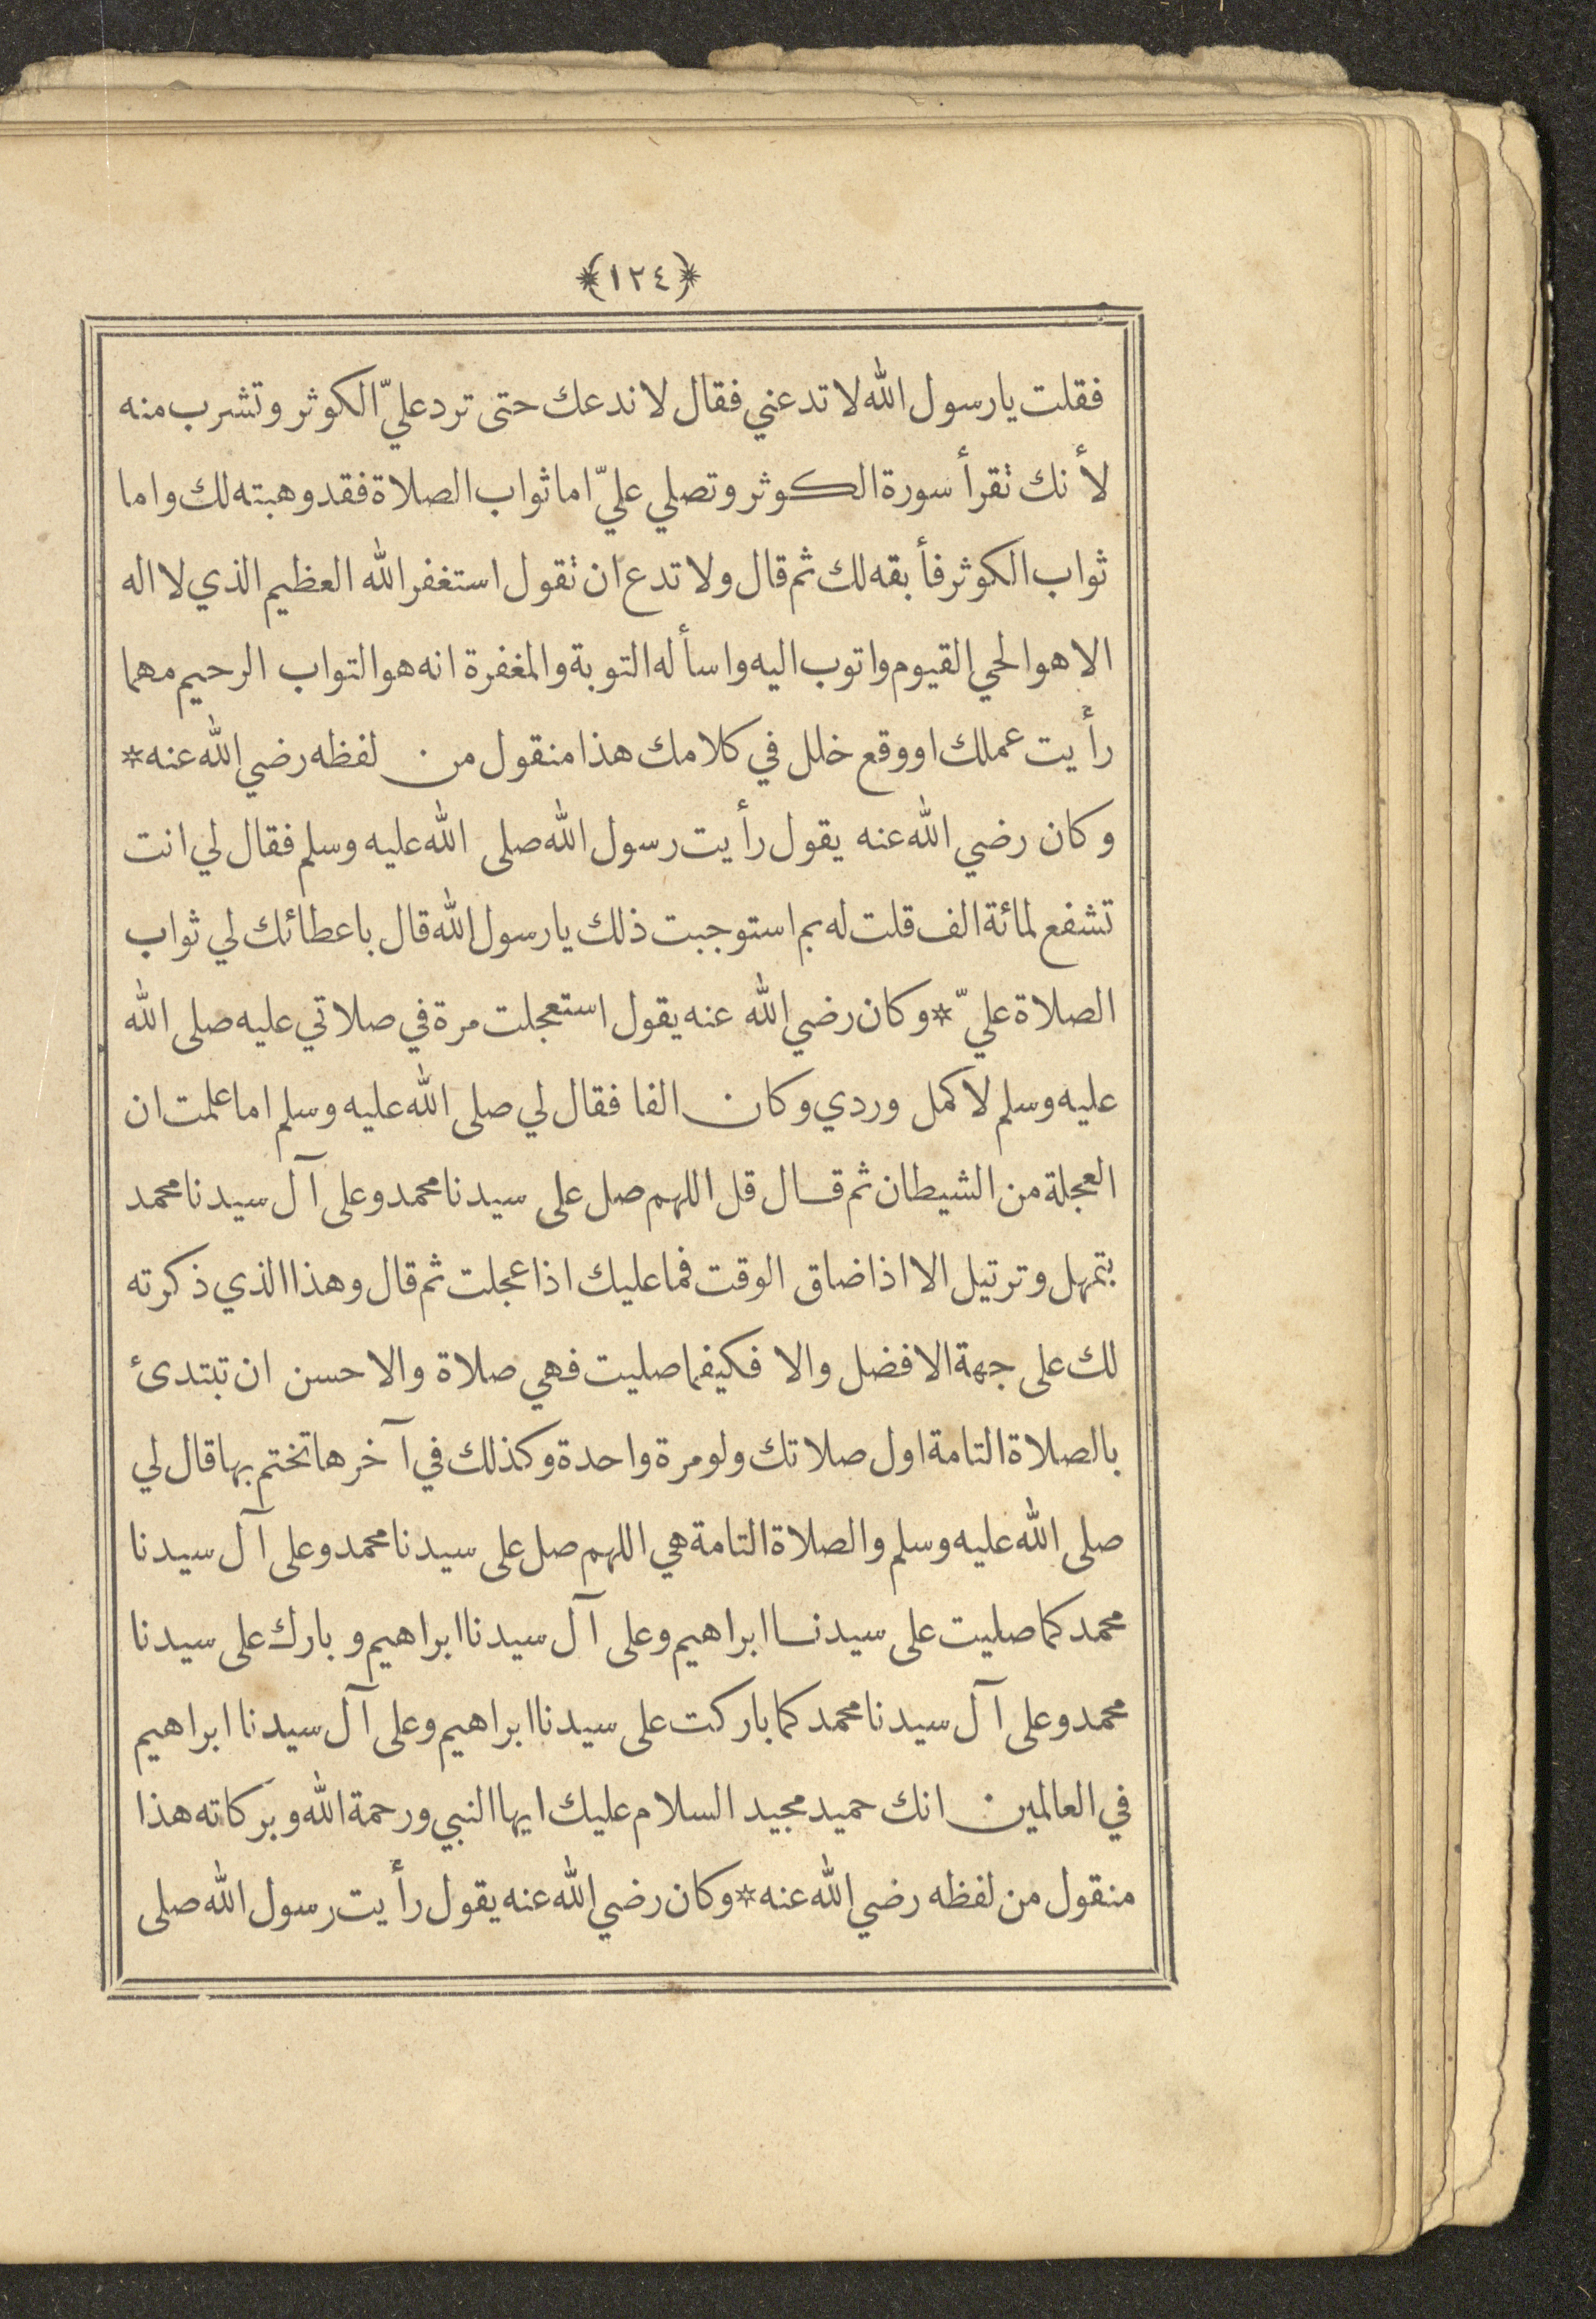 ﴿١٢٤﴾
فقلت يا رسول الله لا تدعني فقال لا ندعك حتى ترد عليّ الكوثر وتشرب منه
لأنك تقرأ سورة الكوثر وتصلي عليّ اما ثواب الصلاة فقد وهبته لك واما
ثواب الكوثر فأبقه لك ثم قال ولا تدع ان تقول استغفر الله العظيم الذي لا اله
الا هو الحي القيوم واتوب اليه واسأله التوبة والمغفرة انه هو التواب الرحيم مهما
رأيت عملك او وقع خلل في كلامك هذا منقول من لفظه رضي الله عنه *
وكان رضي الله عنه يقول رأيت رسول الله صلى الله عليه وسلم فقال لي انت
تشفع لمائة الف قلت له بم استوجبت ذلك يا رسول الله قال باعطائك لي ثواب
الصلاة عليّ * وكان رضي الله عنه يقول استعجلت مرة في صلاتي عليه صلى الله
عليه وسلم لاكمل وردي وكان الفا فقال لي صلى الله عليه وسلم اما علمت ان
العجلة من الشيطان ثم قال قل اللهم صل على سيدنا محمد وعلى آل سيدنا محمد
بتمهل وترتيل الا اذا ضاق الوقت فما عليك اذا عجلت ثم قال وهذا الذي ذكرته
لك على جهة الافضل والا فكيفما صليت فهي صلاة والاحسن ان تبتدئ
بالصلاة التامة اول صلاتك ولو مرة واحدة وكذلك في آخرها تختم بها قال لي
صلى الله عليه وسلم والصلاة التامة هي اللهم صل على سيدنا محمد وعلى آل سيدنا
محمد كما صليت على سيدنا ابراهيم وعلى آل سيدنا ابراهيم وبارك على سيدنا
محمد وعلى آل سيدنا محمد كما باركت على سيدنا ابراهيم وعلى آل سيدنا ابراهيم
في العالمين انك حميد مجيد السلام عليك ايها النبي ورحمة الله وبركاته هذا
منقول من لفظه رضي الله عنه * وكان رضي الله عنه يقول رأيت رسول الله صلى